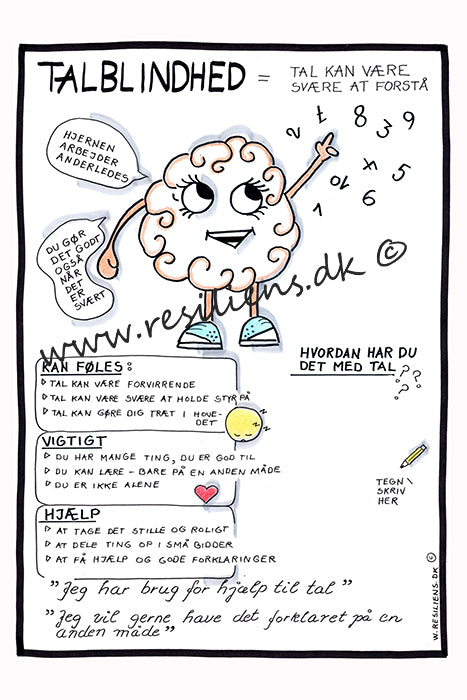 TALBLINDHED = TAL KAN VÆRE
SVÆRE AT FORSTÅ
HJERNEN
ARBEJDER
ANDERLEDES
DU GØR
DET GODT
OGSÅ
NÅR
DET
ER
SVÆRT
2 7 8 3 9
1 10 4 5
6
www.resiliens.dk ©
KAN FØLES:
TAL KAN VÆRE FORVIRRENDE
TAL KAN VÆRE SVÆRE AT HOLDE STYR PÅ
TAL KAN GØRE DIG TRÆT I HOVE-
DET
z z z
VIGTIGT
DU HAR MANGE TING, DU ER GOD TIL
DU KAN LÆRE - BARE PÅ EN ANDEN MÅDE
DU ER IKKE ALENE
HJÆLP
AT TAGE DET STILLE OG ROLIGT
AT DELE TING OP I SMÅ BIDDER
AT FÅ HJÆLP OG GODE FORKLARINGER
HVORDAN HAR DU
DET MED TAL ? ? ? ?
TEGN\
SKRIV
HER
"Jeg har brug for hjælp til tal"
"Jeg vil gerne have det forklaret på en
anden måde"
W.RESILIENS.DK ©